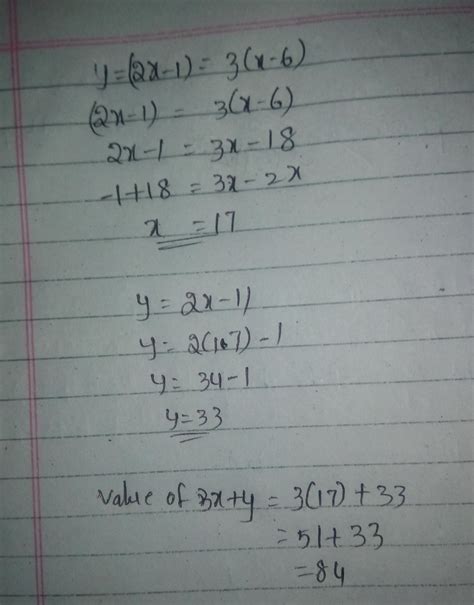 y=(2x-1) = 3(x-6)
(2x-1) = 3(x-6)
2x-1 = 3x-18
-1+18 = 3x-2x
x = 17
y = 2x-1
y = 2(17) -1
y = 34-1
y=33
Value of 3x+y = 3(17) + 33
= 51 + 33
= 84